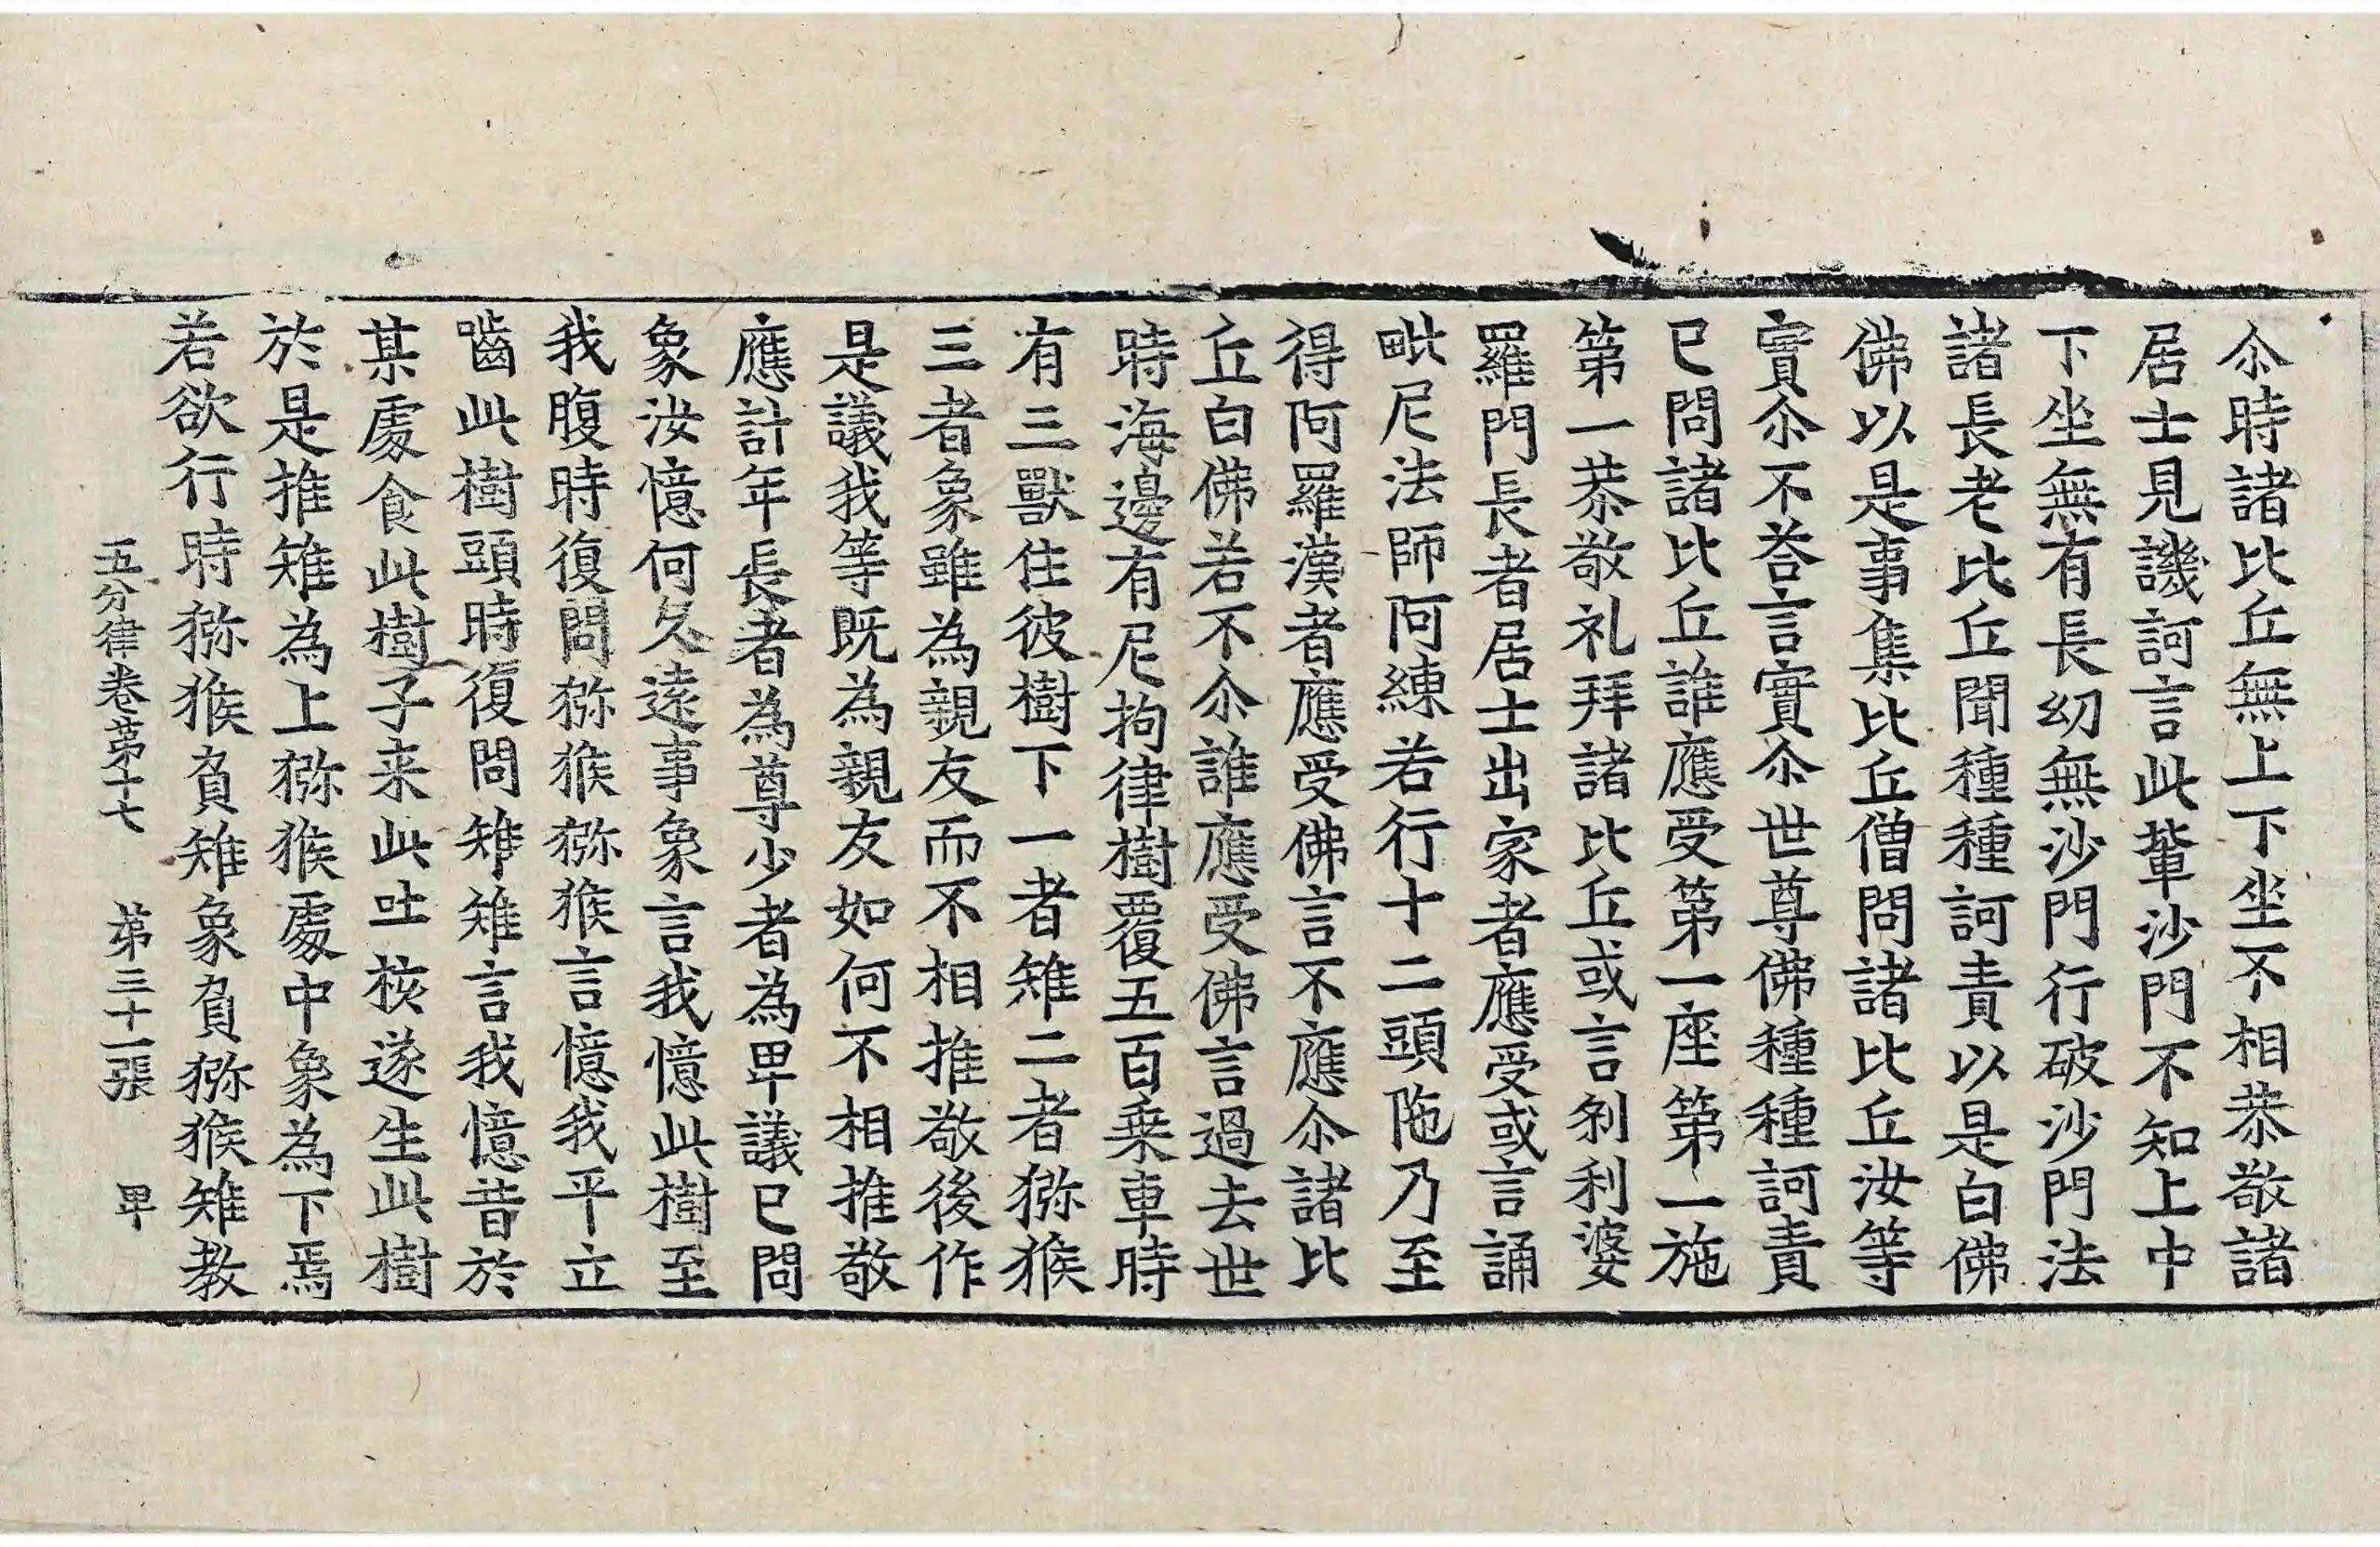 尒時諸比丘無上下坐不相恭敬諸
居士見譏訶言此輩沙門不知上中
下坐無有長幼無沙門行破沙門法
諸長老比丘聞種種訶責以是白佛
佛以是事集比丘僧問諸比丘汝等
實尒不荅言實尒世尊佛種種訶責
已問諸比丘誰應受第一座第一施
第一恭敬礼拜諸比丘或言刹利婆
羅門長者居士出家者應受或言誦
毗尼法師阿練若行十二頭陁乃至
得阿羅漢者應受佛言不應尒諸比
丘白佛若不尒誰應受佛言過去世
時海邊有尼拘律樹覆五百乗車時
有三獸住彼樹下一者雉二者猕猴
三者象雖為親友而不相推敬後作
是議我等既為親友如何不相推敬
應計年長者為尊少者為卑議已問
象汝憶何久遠事象言我憶此樹至
我腹時復問猕猴猕猴言憶我平立
嚙此樹頭時復問雉雉言我憶昔於
某處食此樹子来此吐核遂生此樹
於是推雉為上猕猴處中象為下焉
若欲行時猕猴負雉象負猕猴雉教
五分律卷苐十七 苐三十一張 卑